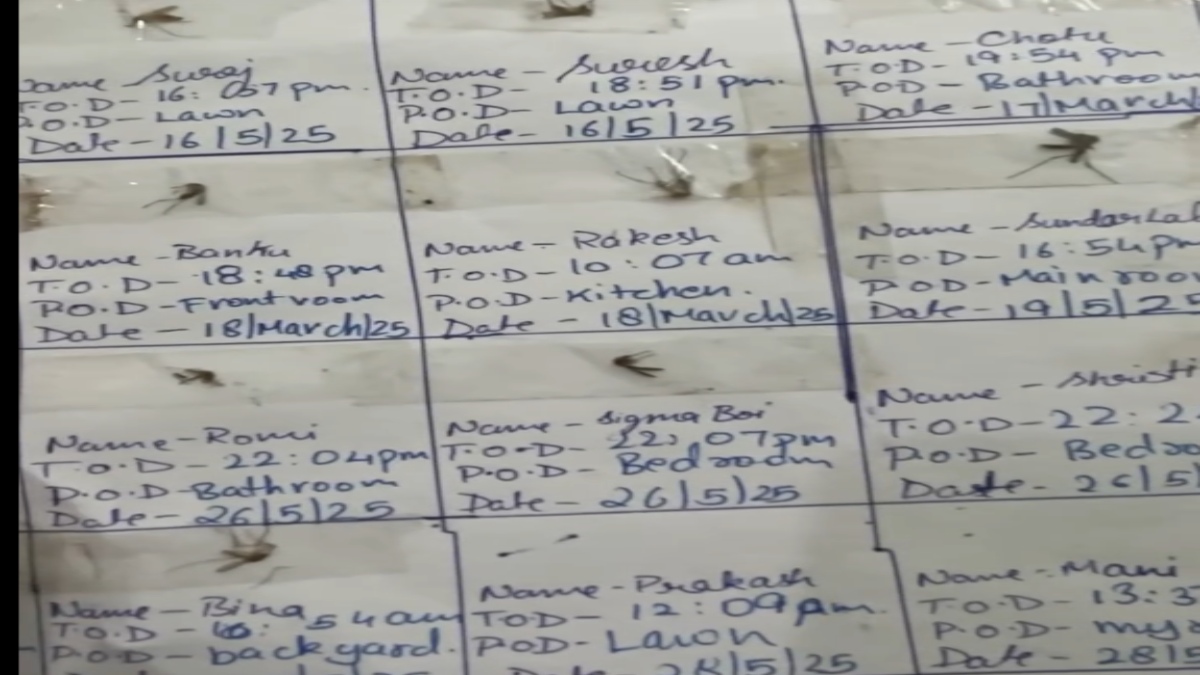 Name - Suraj
T.O.D - 16:07 pm.
P.O.D - Lawn
Date - 16/5/25
Name - Suresh
T.O.D - 18:51 pm.
P.O.D - Lawn
Date - 16/5/25
Name - Chotu
T.O.D - 19:54 pm
POD - Bathroom
Date - 17/March/
Name - Banku
T.O.D - 18:48 pm
P.O.D - Front room
Date - 18/March/25
Name - Rakesh
T.O.D - 10:07 am
P.O.D - Kitchen.
Date - 18/March/25
Name - Sundarlal
T.O.D - 16:54 pm
P.O.D - Main room
Date - 19/5/25
Name - Romi
T.O.D - 22:04 pm
P.O.D - Bathroom
Date - 26/5/25
Name - Sigma Boi
T.O.D - 22:07 pm
P.O.D - Bedroom
Date - 26/5/25
Name - Shristi
T.O.D - 22:2
P.O.D - Bedro
Date - 26/5/
Name - Bina
T.O.D - :54 am
P.O.D - backyard.
Name - Prakash
T.O.D - 12:09 pm.
P.O.D - Lawn
28/5/25
Name - Mani
T.O.D - 13:3
P.O.D - my
Date - 28/5